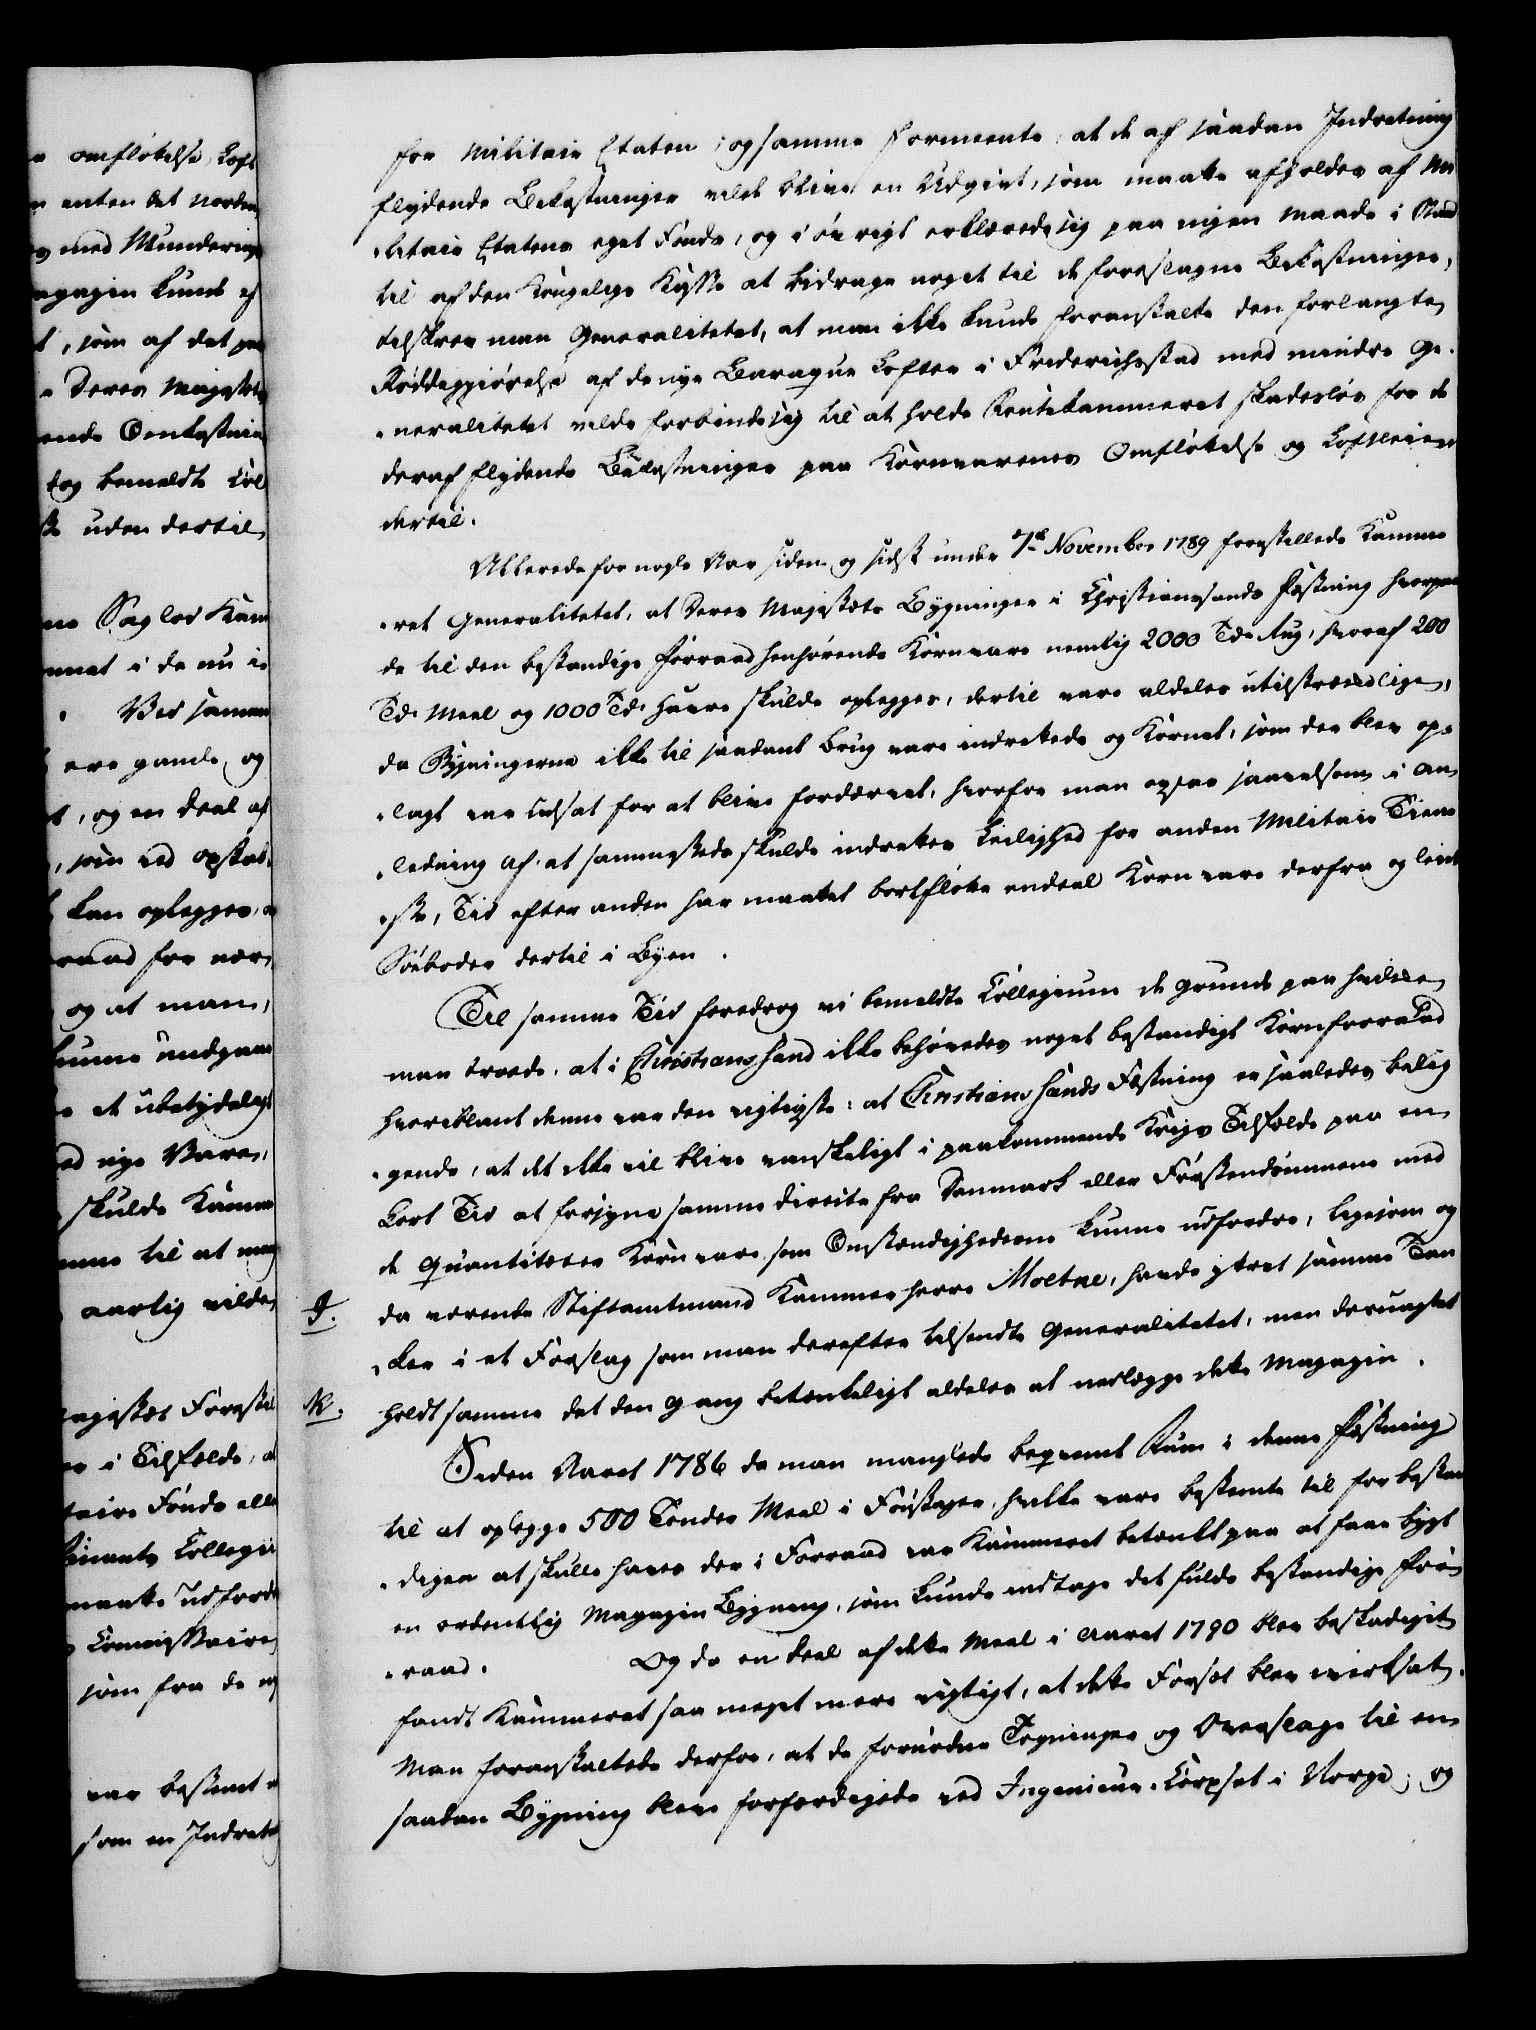 omfløtelse, Loft
enten det norden
med Munderings
agazin kunde ej
, som af det paa
Deres Majestæts
ende Omkostnin
og bemeldte Col
uden dertil
Sag lod Kam
met i de nu i
Ved samme
ere gamle, og
, og en Deel af
, som ved opstab
kan oplegges, a
raad for nær
og at man,
kunne undgaae
et ubetydeligt
ed nye Vare,
skulde Kamme
mme til at maa
aarlig vilde
ajestæt Forestil
i Tilfælde, a
taire Fonds elle
binants Collegii
maatte udfordr
Commissaire
som fra de ny
var bestemt a
som en Indretn
for Militair Etaten; og samme formeente, at de af saadan Indretning
flydende Bekostninger vilde blive en Udgivt, som maatte afholdes af Mi
-litair Etatens eget Fonds, og i øvrigt erklærede sig paa ingen Maade i Stand
til af den Kongelige Kasse at bidrage noget til de foreslagne Bekostninger,
tilskrev man Generalitetet, at man ikke kunde foranstalte den forlangte
Røddeggiørelse af de nye Baraque Lofter i Friderichsstad med mindre Ge-
-neralitetet vilde forbinde sig til at holde Rentekammeret skadesløs for de
deraf flydende Bekostninger paa Kornvarenes Omfløtelse og Loftsleie
dertil.
Allerede for nogle Aar siden og sidst under 7de November 1789 forestillede Kamme
-ret Generalitetet, at Deres Majestæts Bygninger i Christiansands Fæstning hvorpaa
de til den bestandige Forraad henhørende Kornvare nemlig 2000 Tdr Rug, hvoraf 200
Tdr Meel og 1000 Tdr Havre skulde oplegges, dertil vare aldeles utilstrækkelige,
da Bygningerne ikke til saadant Brug vare indrettede og Kornet, som der blev op-
-lagt var udsat for at blive fordærvet, hvorfor man ogsaa saavelsom i An
-ledning af, at sammesteds skulde indrettes Leilighed for anden Militair Tiene
-ste, Tid efter anden har maattet bortfløtte endeel Kornvare derfra og leiet
Søeboder dertil i Byen.
Til samme Tid foredrog vi bemeldte Collegium de Grunde paa hvilke
man troede, at i Christiansand ikke behøvedes noget bestandigt Kornforraad
hvoriblant denne var den vigtigste: at Christiansands Fæstning er saaledes belig
-gende, at det ikke vil blive vanskeligt i paakommende Krigs Tilfælde paa en
kort Tid at forsyne samme directe fra Danmark eller Førstendømmene med
de Quantiteter Kornvare som Omstændighederne kunne udfordre, ligesom og
I.
da værende Stiftamtmand Kammerherre Moltke, havde yttret samme Tan
-ker i et Forslag som man derefter tilsendte Generalitetet, men deruagtet
K.
holdt samme det den Gang betænkeligt aldeles at nedlægge dette Magazin.
Siden Aaret 1786 da man manglede beqvemt Rum i denne Fæstning
til at oplegge 500 Tønder Meel i Foustager, hvilke vare bestemte til for bestan
-digen at skulle haves der i Forraad var Kammeret betænkt paa at faae bygt
en ordentlig Magazin Bygning, som kunde indtage det fulde bestandige For
-raad. Og da en Deel af dette Meel i Aaret 1790 blev beskadiget
fandt Kammeret saa meget mere vigtigt, at dette Forsæt blev iverksat.
Man foranstaltede derfor, at de fornødne Tegninger og Overslage til en
saadan Bygning bleve forfærdigede ved Ingenieur-Corpset i Norge; og